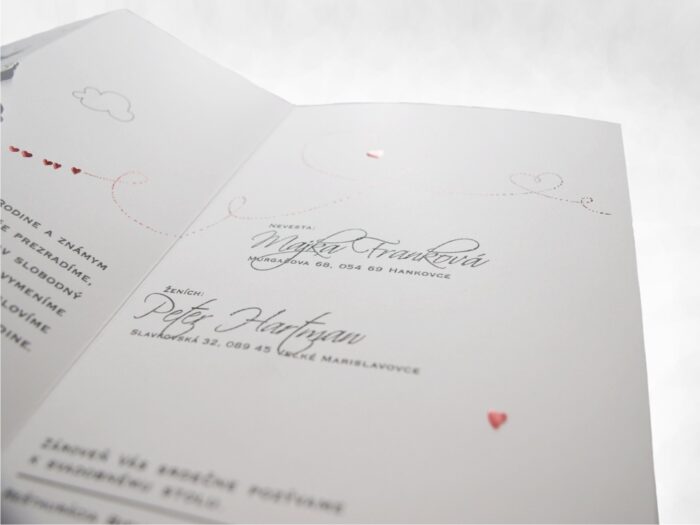 RODINE A ZNÁMYM
PREZRADÍME,
SLOBODNÝ
VYMENÍME
SLOVÍME
DINE.
NEVESTA:
Majka Franková
MURGAŠOVA 68, 054 69 HANKOVCE
ŽENÍCH:
Peter Hartman
SLAVKOVSKÁ 32, 089 45 VEĽKÉ MARISLAVOVCE
ZÁROVEŇ VÁS SRDEČNE POZÝVAME
K SVADOBNÉMU STOLU